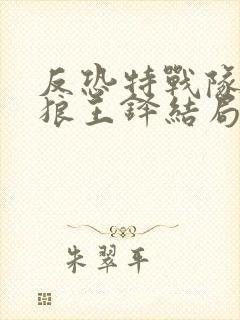 反恐特戰隊
狼王鋒結局
朱翠平